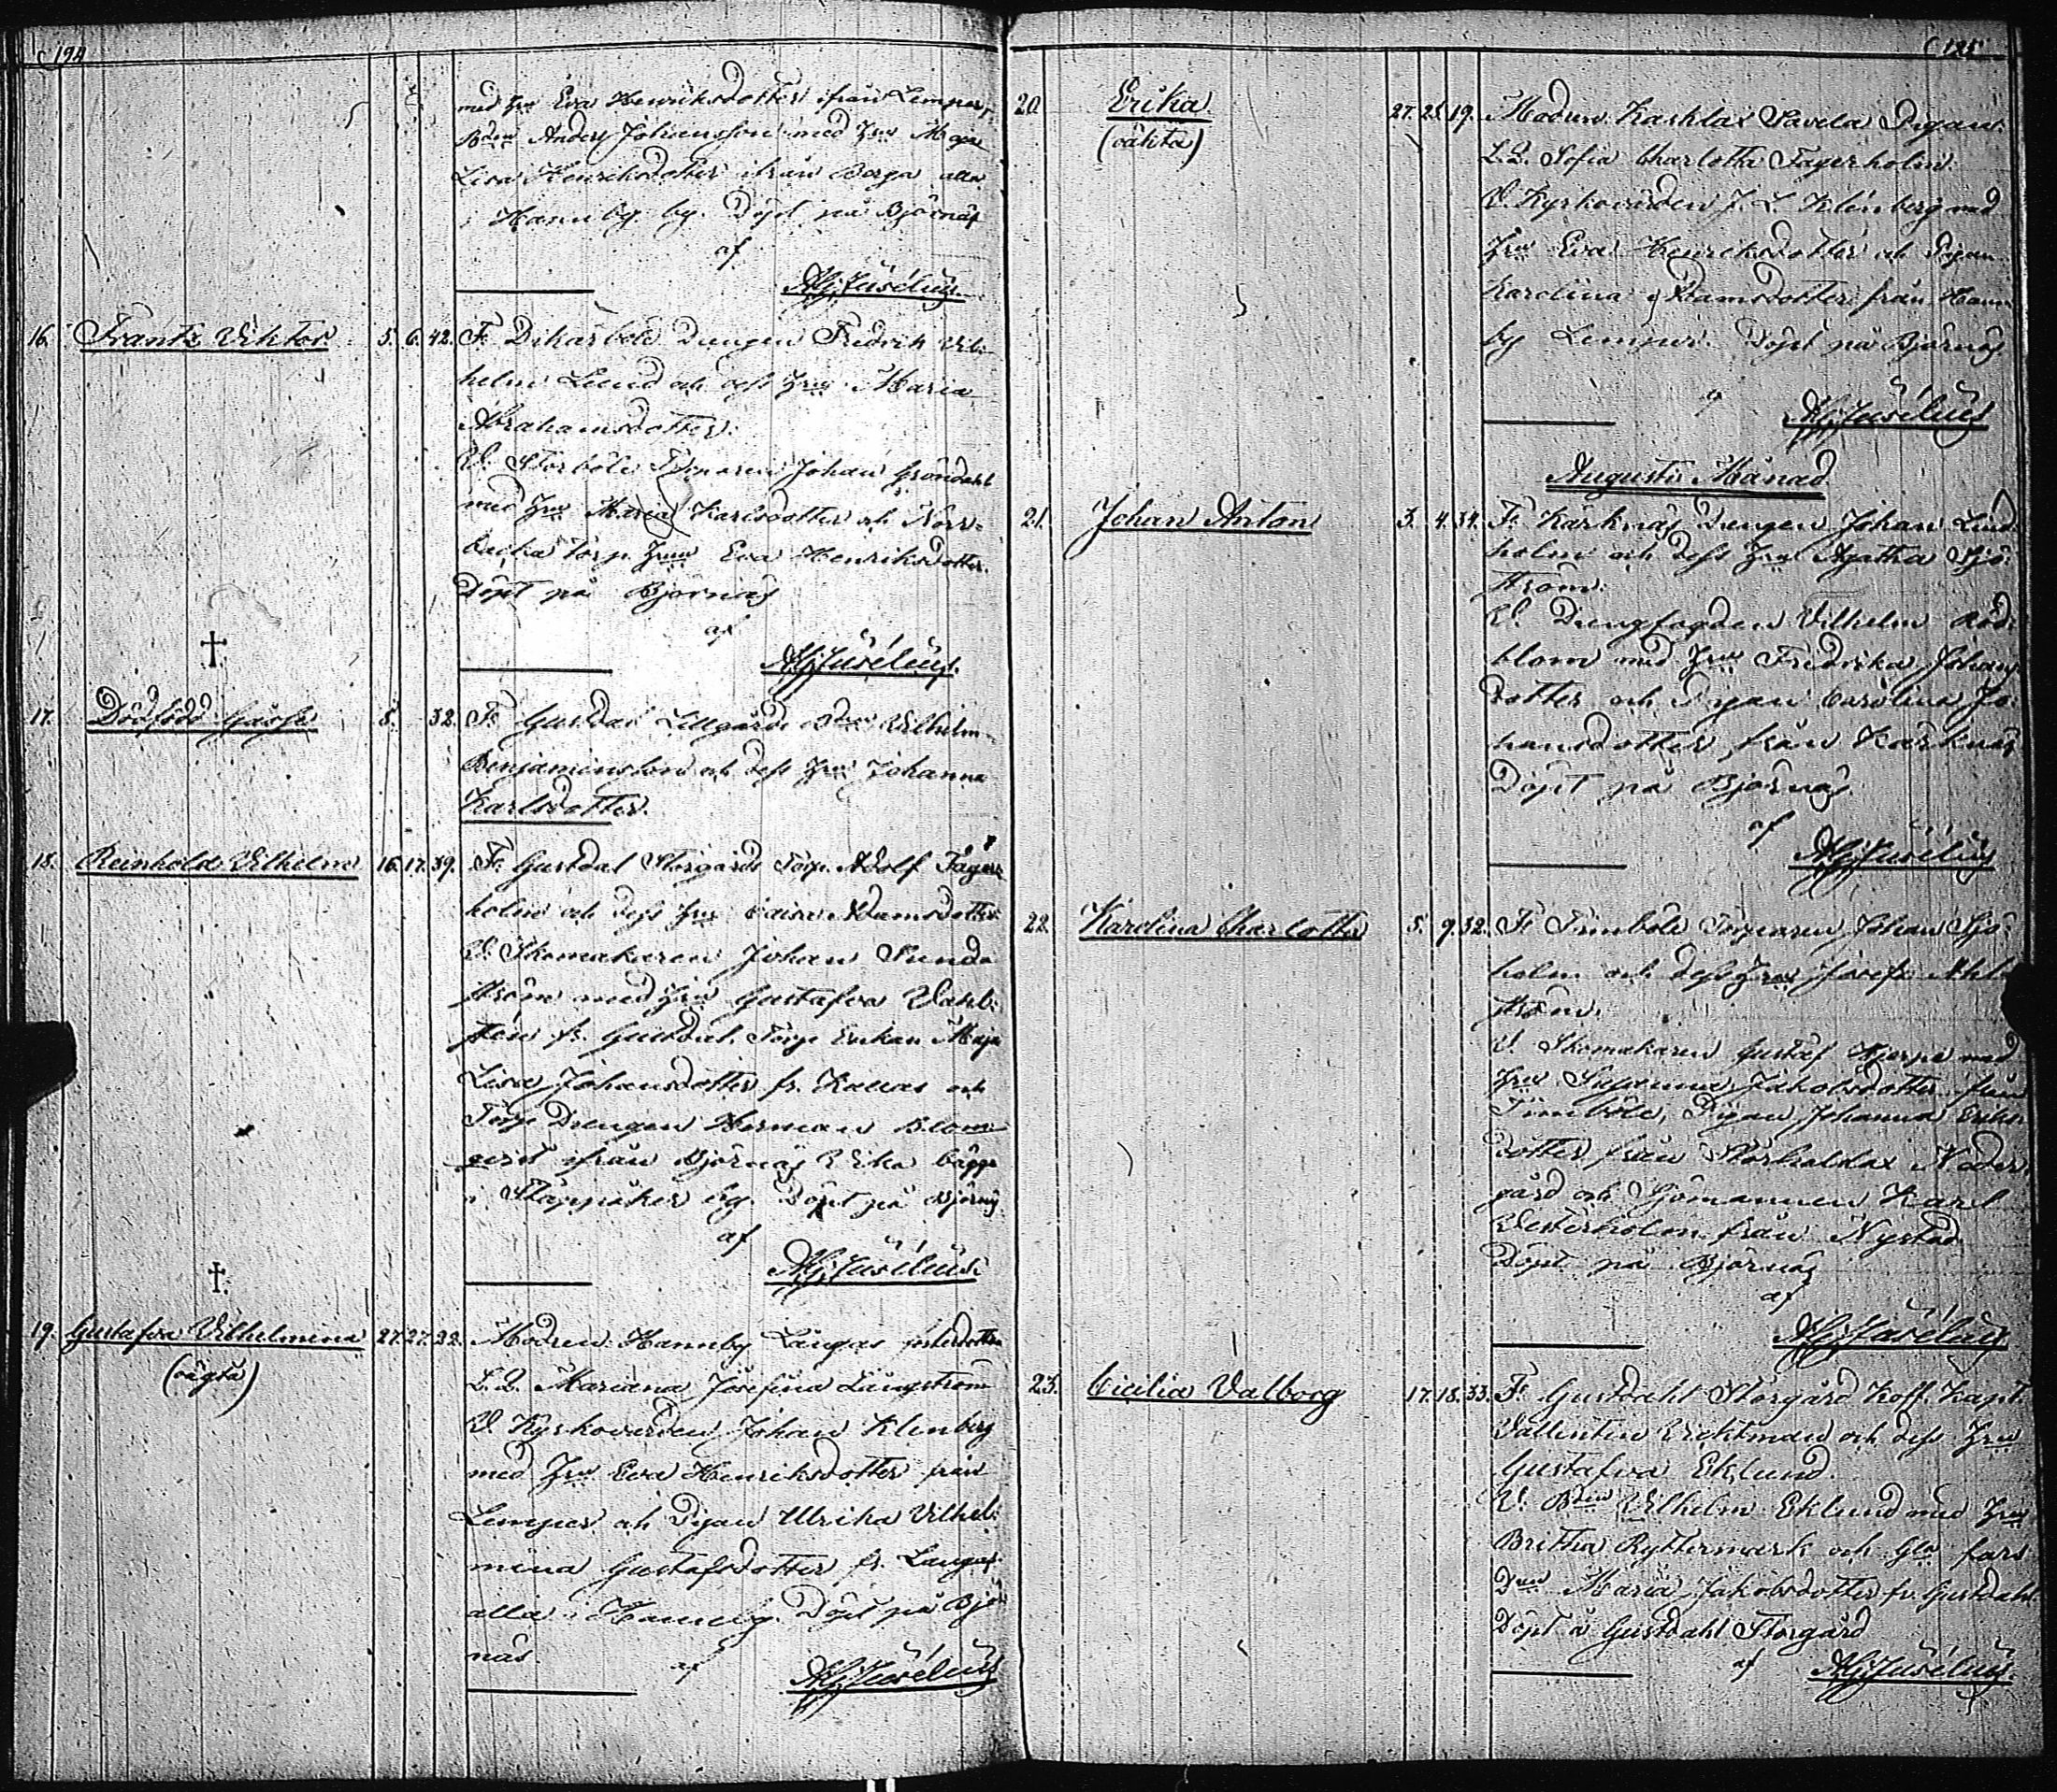 124
med hru Eva Henriksdotter ifrån Lemper,
Bden Anders Johansson med hru Maja
Lisa Henriksdotter ifrån Borga alla
i Hannby by. Döpt på Björnäs
af
16. Frantz Viktor 5. 6. 42. F. Dikarböle Drengen Fredrik Vil-
helm Lund och dess hru Maria
Abrahamsdotter.
V. Storböle Torparen Johan Gröndahl
med hru Maria Karlsdotter och Norr-
backa torp. hru Eva Henriksdotter.
Döpt på Björnäs
af
†
17. Dödfödd Gosse 8. 32. F. Gusdal Lillgårds Bden Vilhelm
Benjaminsson och dess hru Johanna
Karlsdotter.
18. Reinhold Vilhelm 16. 17. 39. F. Gusdal Storgårds Torp. Adolf Fager-
holm och dess hru Caisa Adamsdotter
V. Skomakaren Johan Sund-
ström med hru Gustafva Vahl-
sten fr. Gusdal, Torp Enkan Maja
Lisa Johansdotter fr. Kallas och
Torp Drengen Herman Blom-
qvist ifrån Björnäs bägge
i Släppåker by. Döpt på Björnäs
af
†.
19. Gustafva Vilhelmina 27. 27. 22. Modren Hannby Långas
(oägta) L.Q. Mariana Josefina Långström
V. Kyrkovärden Johan Klenberg
med hru Eva Henriksdotter från
Lemper och Pigan Ulrika Vilhel-
mina Gustafsdotter fr. Långas
alla i Hannby. Döpt på Björ-
näs.
af
125
20. Erika 27. 28. 19. Modren Karklax Savela Pigan
(oäkta) L.Q. Sofia Charlotta Fagerholm.
V. Kyrkovärden J. L. Klenberg med
hru Eva Henriksdotter och Pigan
Karolina Adamsdotter från Hann-
by Lemper. Döpt på Björnäs
af
Augusti Månad
21. Johan Anton 3. 4. 34. F. Karknäs Drengen Johan Lind-
holm och dess hru Agatha Sjö-
ström.
V. Drengfogden Vilhelm Röd-
blom med hru Fredrika Johans-
dotter och Pigan Carolina Jo-
hansdotter från Karknäs
Döpt på Björnäs
af
22. Karolina Charlotta 5. 9. 32. F. Timböle Torparen Johan Sjö-
holm och dess hru Josefa Ahl-
ström.
V. Skomakaren Gustaf Hjerpe med
hru Susanna Jakobsdotter från
Timböle, Pigan Johanna Eriks-
dotter från Störholdax Neder-
gård och Sjömannen Karl
Vesterholm från Nystad
Döpt på Björnäs
af
23. Cicilia Valborg 17. 18. 33. F. Gusdahl Storgård Koff. Kapt.
Vallentin Wicktman och dess hru
Gustafva Eklund.
V. Bden Vilhelm Eklund med hru
Britha Ryttermark och Gla fars
Maria Jakobsdotter fr. Gusdahl.
Döpt å Gusdahl Storgård
af